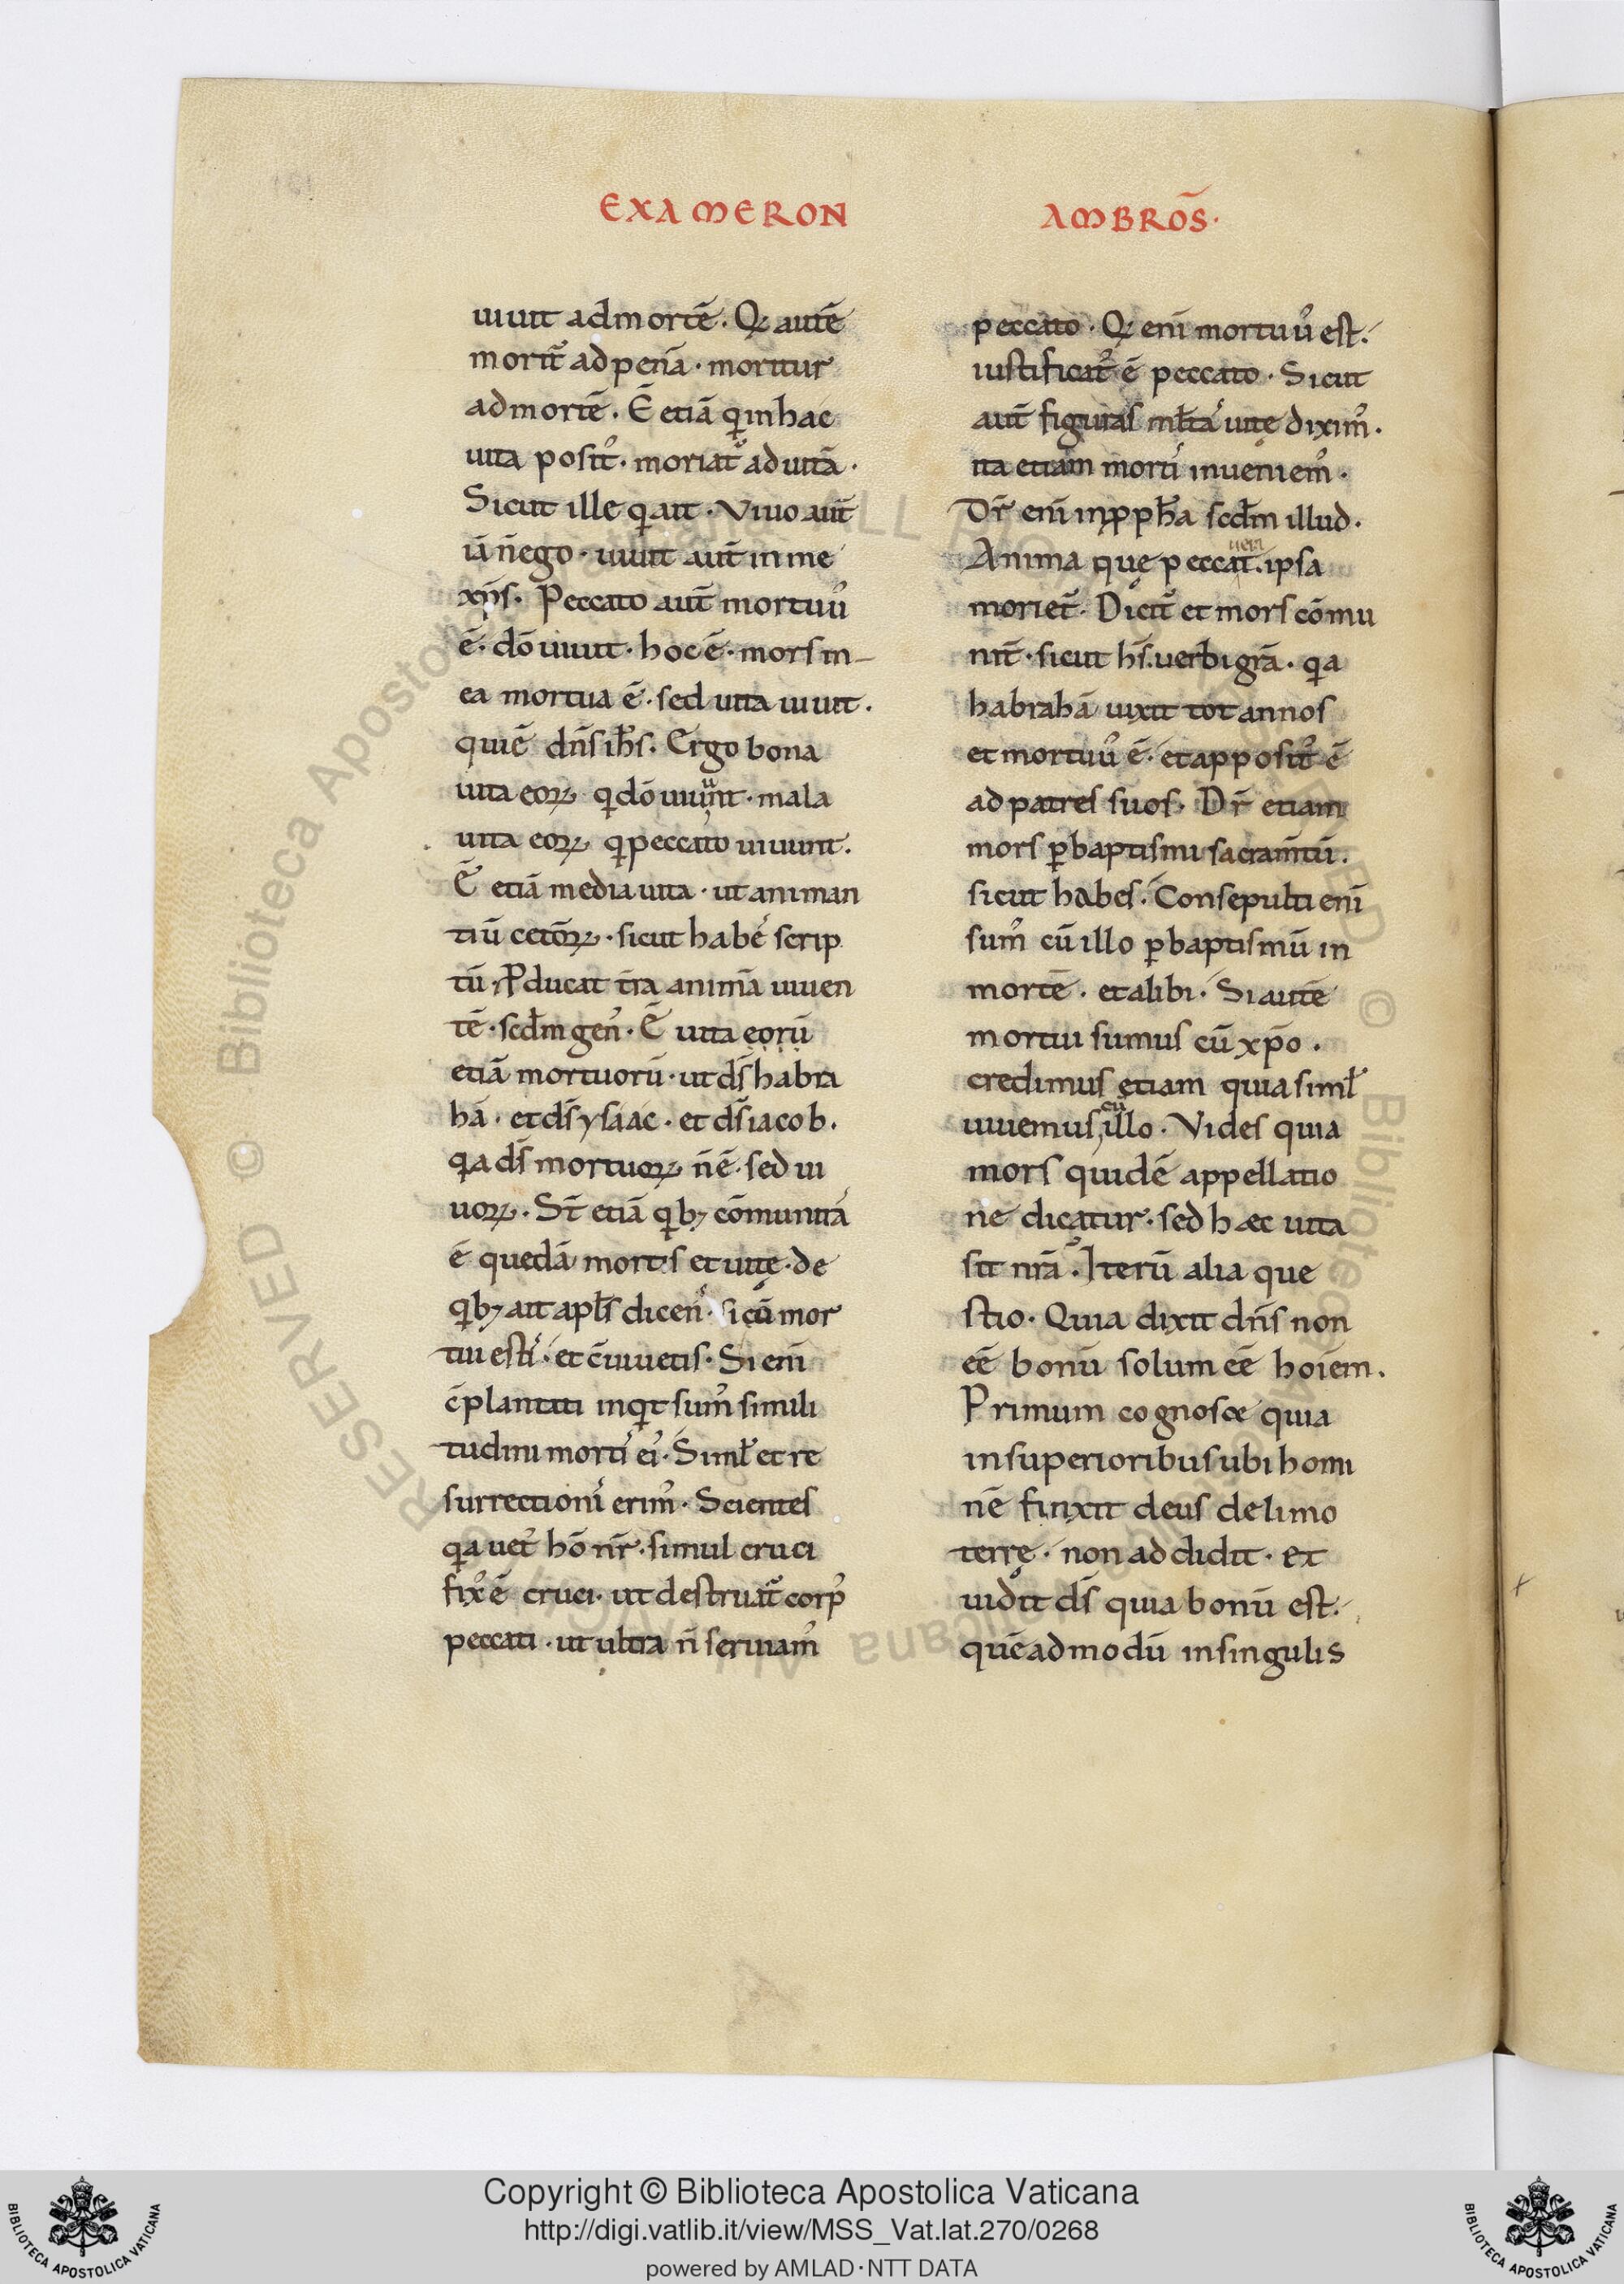 EXAMERON
AMBROS̄·
uiuit ad mortē. Q autē
morit̄ ad penā · moritur
ad mortē. Ē etiā q in hac
uita posit᷒. moriat̄ ad uitā.
Sicut ille q ait · Viuo aut̄
ū n̄ ego · uiuit aut̄ in me
xp̄s. Peccato aut̄ mortuu᷒
ē. dō uiuit · hoc ē · mors in
ea mortua ē · sed uita uiuit.
qui ē dn̄s ih̄s. Ergo bona
uita eoꝝ q dō uiuunt · mala
uita eoꝝ q peccato uiuunt.
Ē etiā media uita · ut animan
tiū cetōꝝ · sicut habe᷒ scrip
tū. Pducat tr̄a animā uiuen
tē · scdm̄ gen᷒. Ē uita eorū
etiā mortuorū · ut ds̄ habra
hā · et ds̄ ysaac · et ds̄ iacob.
qa ds̄ mortuoꝝ n̄ ē · sed ui
uoꝝ. St̄ etiā qbꝫ cōmunita᷒
ē quedā mortis et uitę · de
qbꝫ ait apl̄s dicen᷒ · sicū mor
tui esti᷒ · et c̄uiuetis · Si eni̅
c̄plantati inqt sum᷒ simili
tudini morti᷒ ei᷒. Siml̄ et re
surrectioni᷒ erim᷒. Scientes
qa uet᷒ hō nr̄ · simul cruci
fix᷒ ē cruci · ut destruat̄ corp᷒
peccati · ut ultra n̄ seruiam᷒
peccato · Q eni̅ mortuu᷒ est.
iustificat᷒ ē peccato · Sicut
aut̄ figuras ml̄ta᷒ uite dixim᷒.
ita etiam morti᷒ inueniem᷒.
Dr̄ eni̅ in pph̄a scdm̄ illud.
Anima quę peccat. ipsa
moriet̄. Dicit̄ et mors cōmu
nit̄ · sicut hs̄. uerbi grā · qa
habrahā uixit tot annos
et mortuu᷒ ē. et apposit᷒ ē
ad patres suos. Dr̄ etiam
mors ꝑ baptismi sacram̄tū.
sicut habes. Consepulti eni̅
sum᷒ cū illo ꝑ baptismū in
mortē. et alibi. Si autē
mortui sumus cū xp̄o.
credimus etiam quia siml̄
cū
uiuemus, illo. Vides quia
mors quidē appellatio
ne dicatur · sed hæc uita
sit nrā. Iterū alia que
stio. Quia dixit dn̄s non
eē bonū solum eē hoiem̄.
Primum cognosce quia
in superioribus ubi homi
nē finxit deus de limo
terrę · non addidit · et
uidit ds̄ quia bonū est.
quē ad modū in singulis
Copyright © Biblioteca Apostolica Vaticana
http://digi.vatlib.it/view/MSS_Vat.lat.270/0268
powered by AMLAD·NTT DATA
BIBLIOTECA APOSTOLICA VATICANA
BIBLIOTECA APOSTOLICA VATICANA